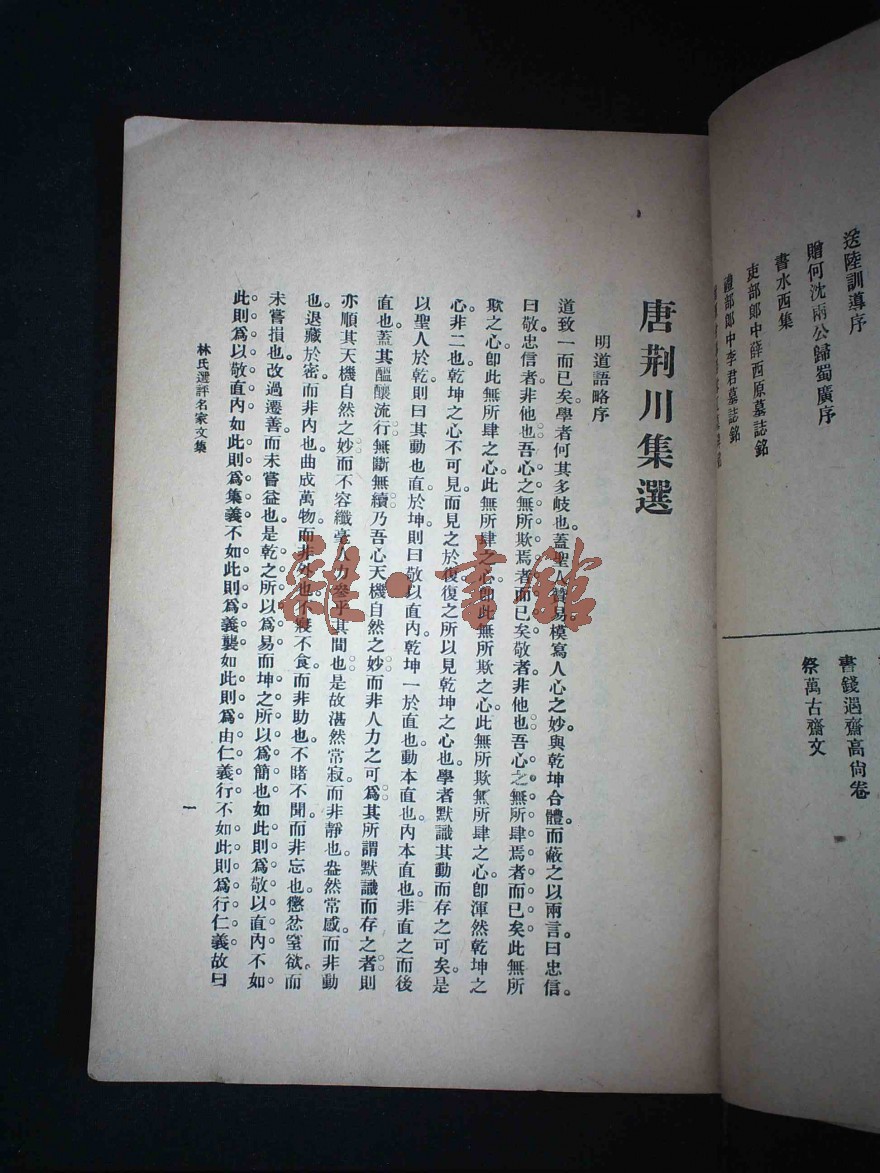 送陸訓導序
贈何沈兩公歸蜀廣序
書水西集
吏部郎中薛西原墓誌銘
禮部郎中李君墓誌銘
書錢遇齋高尚卷
祭萬古齋文
唐荆川集選
明道語略序
道致一而已矣學者何其多岐也蓋聖人贊易模寫人心之妙與乾坤合體。而蔽之以兩言曰忠信。
曰敬忠信者非他也吾心之無所欺焉者而已矣敬者非他也吾心之無所肆焉者而已矣此無所
欺之心卽此無所肆之心此無所肆之心卽此無所欺之心。此無所欺無所肆之心卽渾然乾坤之
心。非二也乾坤之心不可見而見之於復復之所以見乾坤之心也學者默識其動而存之可矣是
以聖人於乾則曰其動也直於坤則曰敬以直內乾坤一於直也動本直也內本直也。非直之而後
直也蓋其醞釀流行無斷無續乃吾心天機自然之妙而非人力之可爲其所謂默識而存之者則
亦順其天機自然之妙而不容纖毫人力參乎其間也是故湛然常寂而非靜也盎然常感。而非動
也。退藏於密而非內也曲成萬物。而非外也不寢不食。而非助也不睹不聞而非忘也懲忿窒欲。而
未嘗損也。改過遷善。而未嘗益也是乾之所以爲易而坤之所以爲簡也如此則爲敬以直內不如
此則爲以敬直內如此則爲集義不如此則爲義襲如此則爲由仁義行不如此則爲行仁義故曰
林氏選評名家文集
一
雜·書館